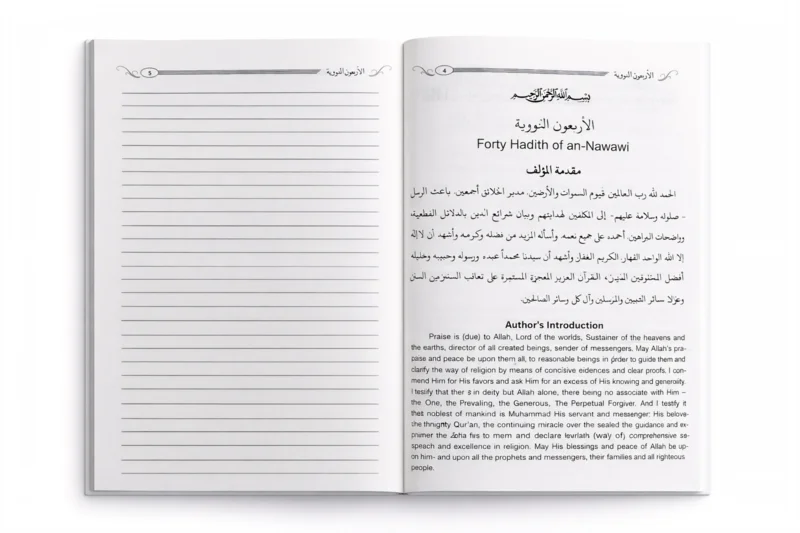 4
الأربعون النووية
بسم الله الرحمن الرحيم
الأربعون النووية
Forty Hadith of an-Nawawi
مقدمة المؤلف
الحمد لله رب العالمين قيوم السموات والأرضين. مدبر الخلائق أجمعين. باعث الرسل
- صلوله وسلامة عليهم- إلى المكلفين لهدايتهم وبيان شرائع الدين بالدلائل القطعية،
وواضحات البراهين. أحمده على جميع نعمه. وأسأله المزيد من فضله وكرمه وأشهد أن لا إله
إلا الله الواحد القهار. الكريم الغفار وأشهد أن سيدنا محمداً عبده ورسوله وحبيبه وخليله
أفضل المخلوقين القرآن العزيز المعجزة المستمرة على تعاقب السنن
سائر النبيين والمرسلين وآل كل وسائر الصالحين.
Author's Introduction
Praise is (due) to Allah, Lord of the worlds, Sustainer of the heavens and
the earths, director of all created beings, sender of messengers. May Allah's pra-
pase and peace be upon them all, to reasonable beings in order to guide them and
clarify the way of religion by means of concisive eidences and clear proofs. I con-
mend Him for His favors and ask Him for an excess of His knowing and generosity.
I testify that ther is in deity but Allah alone, there being no associate with Him –
the One, the Prevaling, the Generous, The Perpetual Forgiver. And I testify it
thet noblest of mankind is Muhammad His servant and messenger: His belove-
the Qur'an, the continuing miracle over the sealed the guidance and ex-
to mem and declare (way of) comprehensive se-
speach and excellence in religion. May His blessings and peace of Allah be up-
on him- and upon all the prophets and messengers, their families and all righteous
people.
5
الأربعون النووية